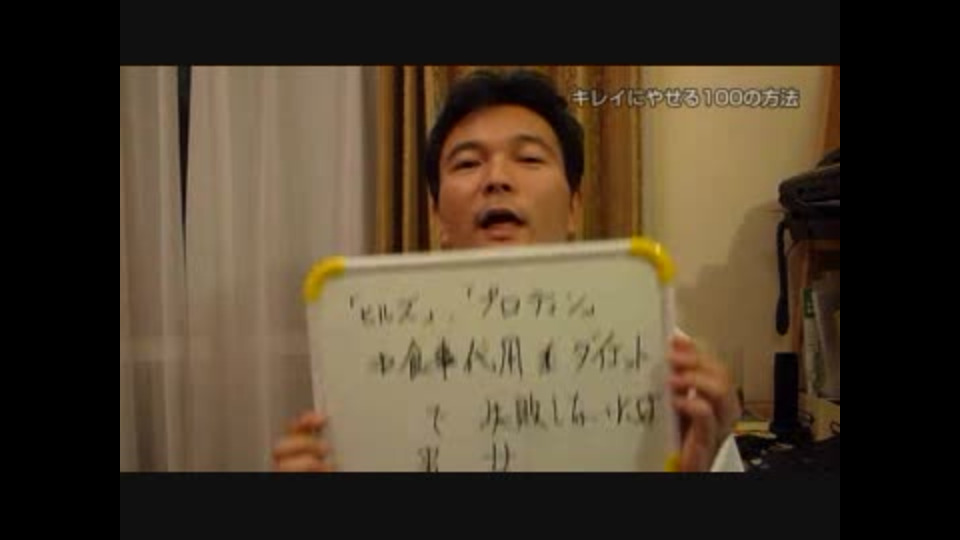 キレイにやせる100の方法
「ヒルズ」、「プロティン」
食事代用 ダイエット
で 失敗しない